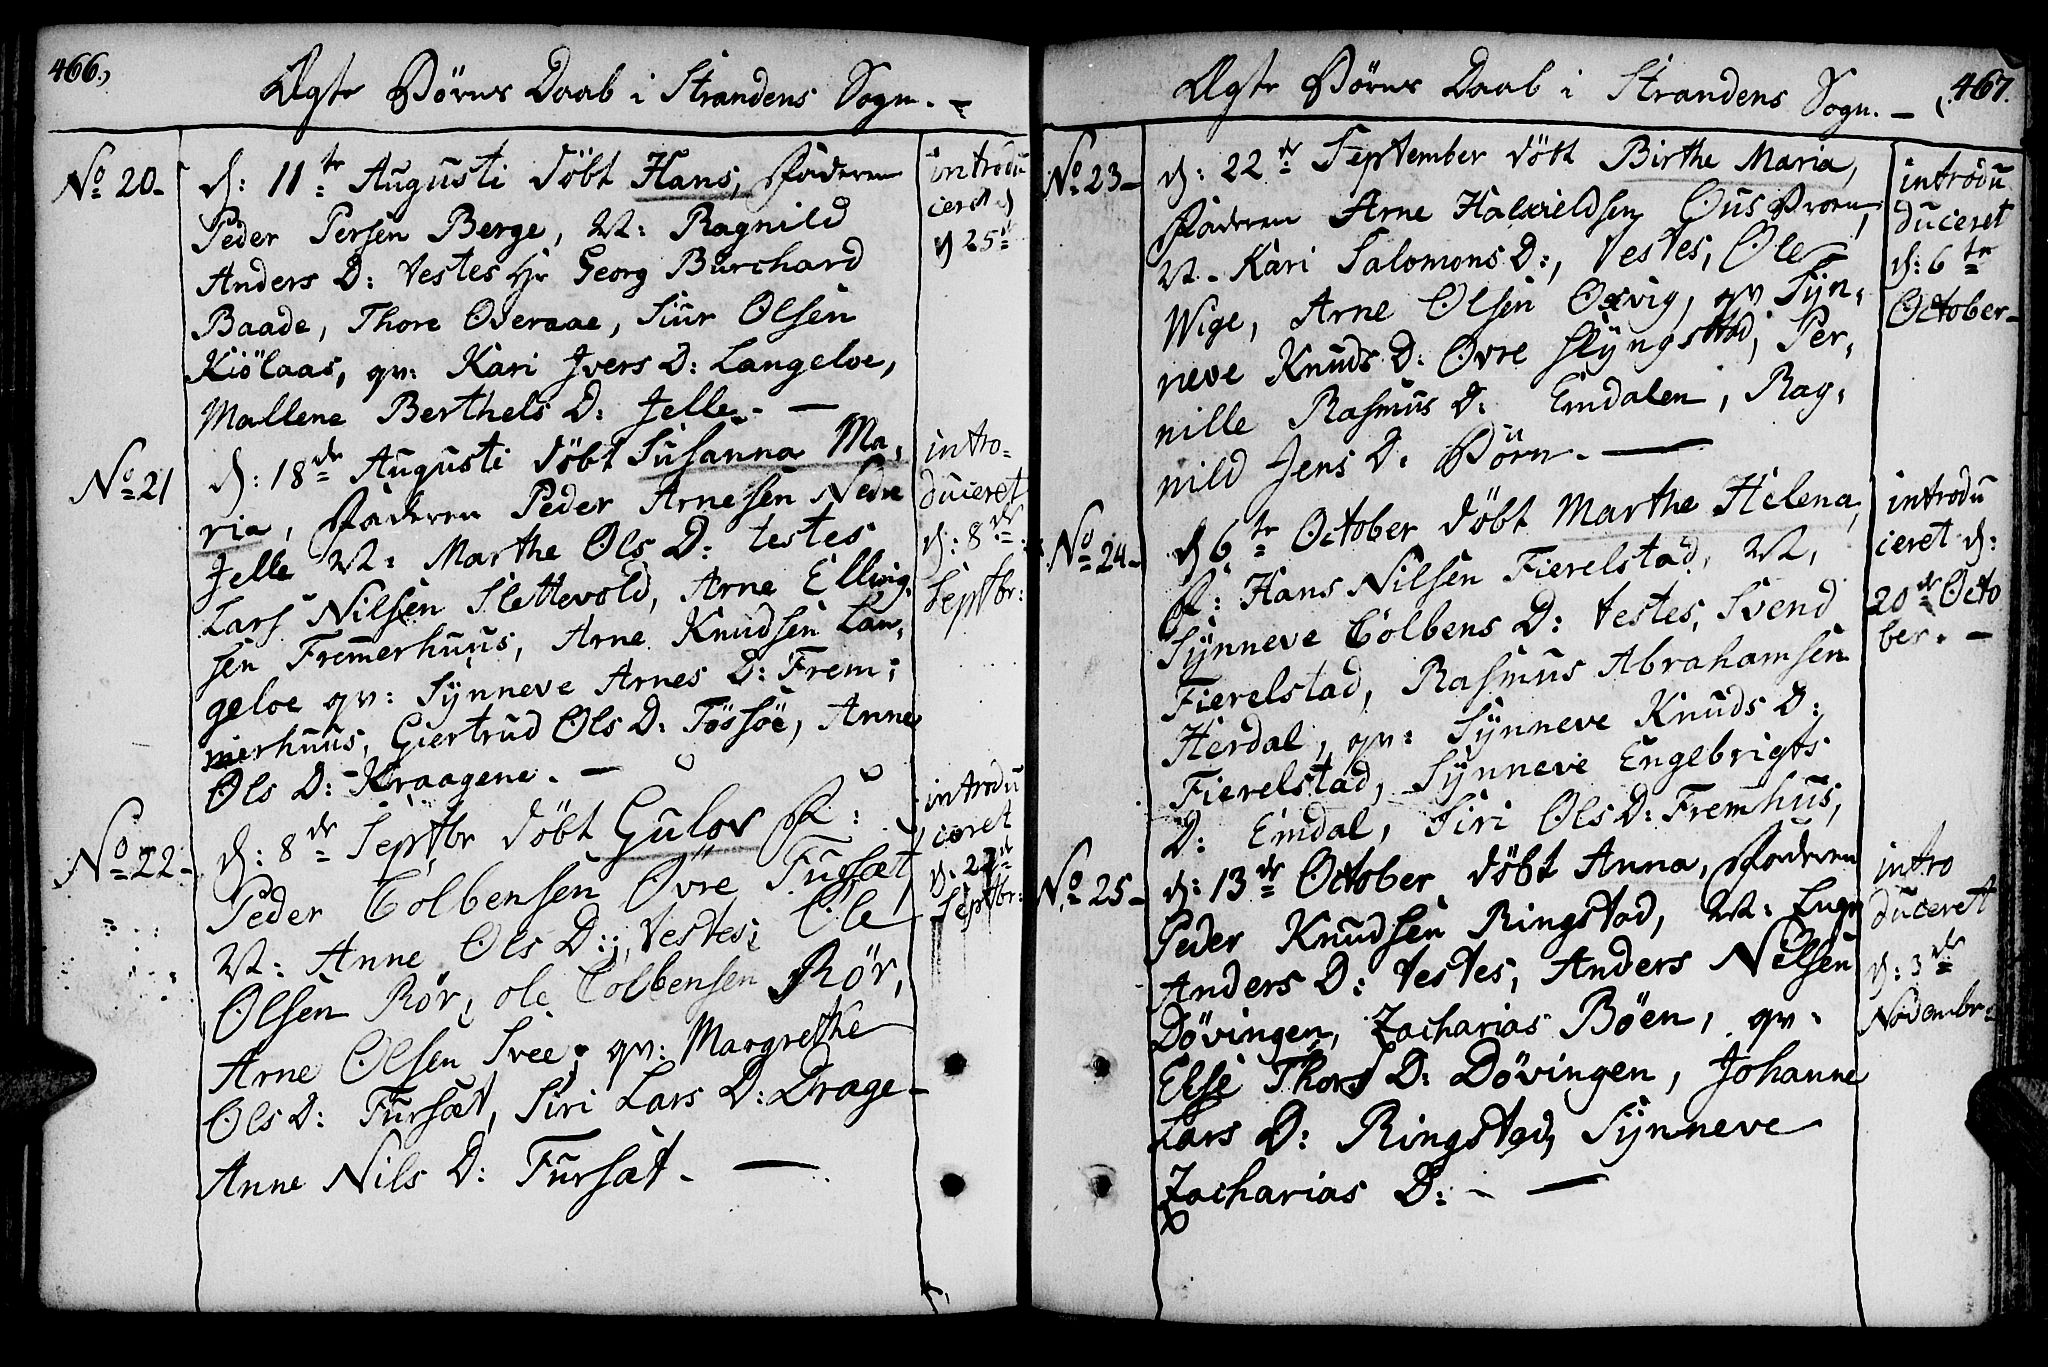 466.
Ægte Börns Daab i Strandens Sogn. -
No 20-
d: 11te Augusti döbt Hans, Faderen
Peder Persen Berge, M: Ragnild
Anders D: testes Hr Georg Burchard
Baade, Thore Overaae, Siur Olsen
Kiölaas, qv: Kari Jvers D: Langeloe,
Mallene Berthels D: Jelle. -
introdu
ceret d
d 25de
No 21
d: 18de Augusti döbt Susanna Ma,
ria, Faderen Peder Arnesen Nedre
Jelle M: Marthe Ols D: testes
Lars Nilsen Slettevold, Arne Elling,
sen Fremerhuus, Arne Knudsen Lan,
geloe qv: Synneve Arnes D: Frem,
merhuus, Giertrud Ols D: Tössöe, Anne
Ols D: Kraagene. -
intro-
duceret
d: 8de
Septbr:
No 22-
d: 8de Septbr döbt Gulov F:
Peder Colbensen Övre Fursæt,
M: Anne Ols D:, testes; Ole
Olsen Rör, ole Colbensen Rör,
Arne Olsen Svee; qv: Margrethe
Ols D: Fursæt, Siri Lars D: Drage-
Anne Nils D: Fursæt. -
introdu
ceret
d: 22de
Septbr:
467.
Ægte Börns Daab i Strandens Sogn. -
No 23-
d: 22de September döbt Birthe Maria,
Faderen Arne Halvieldsen Ousbroen,
M- Kari Salomons D:, testes, Ole
Wige, Arne Olsen Oxvig, qv Syn,
neve Knuds D: Övre Slyngstad, Per,
nille Rasmus D: Emdalen, Rag,
nild Jens D: Börn. -
introdu
duceret
d: 6te
October-
No 24-
d 6te October döbt Marthe Helena,
F: Hans Nilsen Fierelstad, M,
Synneve Colbens D: testes, Svend
Fierelstad, Rasmus Abrahamsen
Herdal, qv: Synneve Knuds D:
Fierelstad, Synneve Engebrigts
D: Emdal, Siri Ols D: Fremhus,
introdu
ceret d:
20de Octo
ber. -
No 25-
d: 13de October döbt Anna, Faderen
Peder Knudsen Ringstad, M:
Anders D: testes, Anders Nilsen
Dövingen, Zacharias Böen, qv:
Else Thors D: Dövingen, Johanne
Lars D: Ringstad, Synneve
Zacharias D: - -
intro
duceret
d: 3de
Novembr: